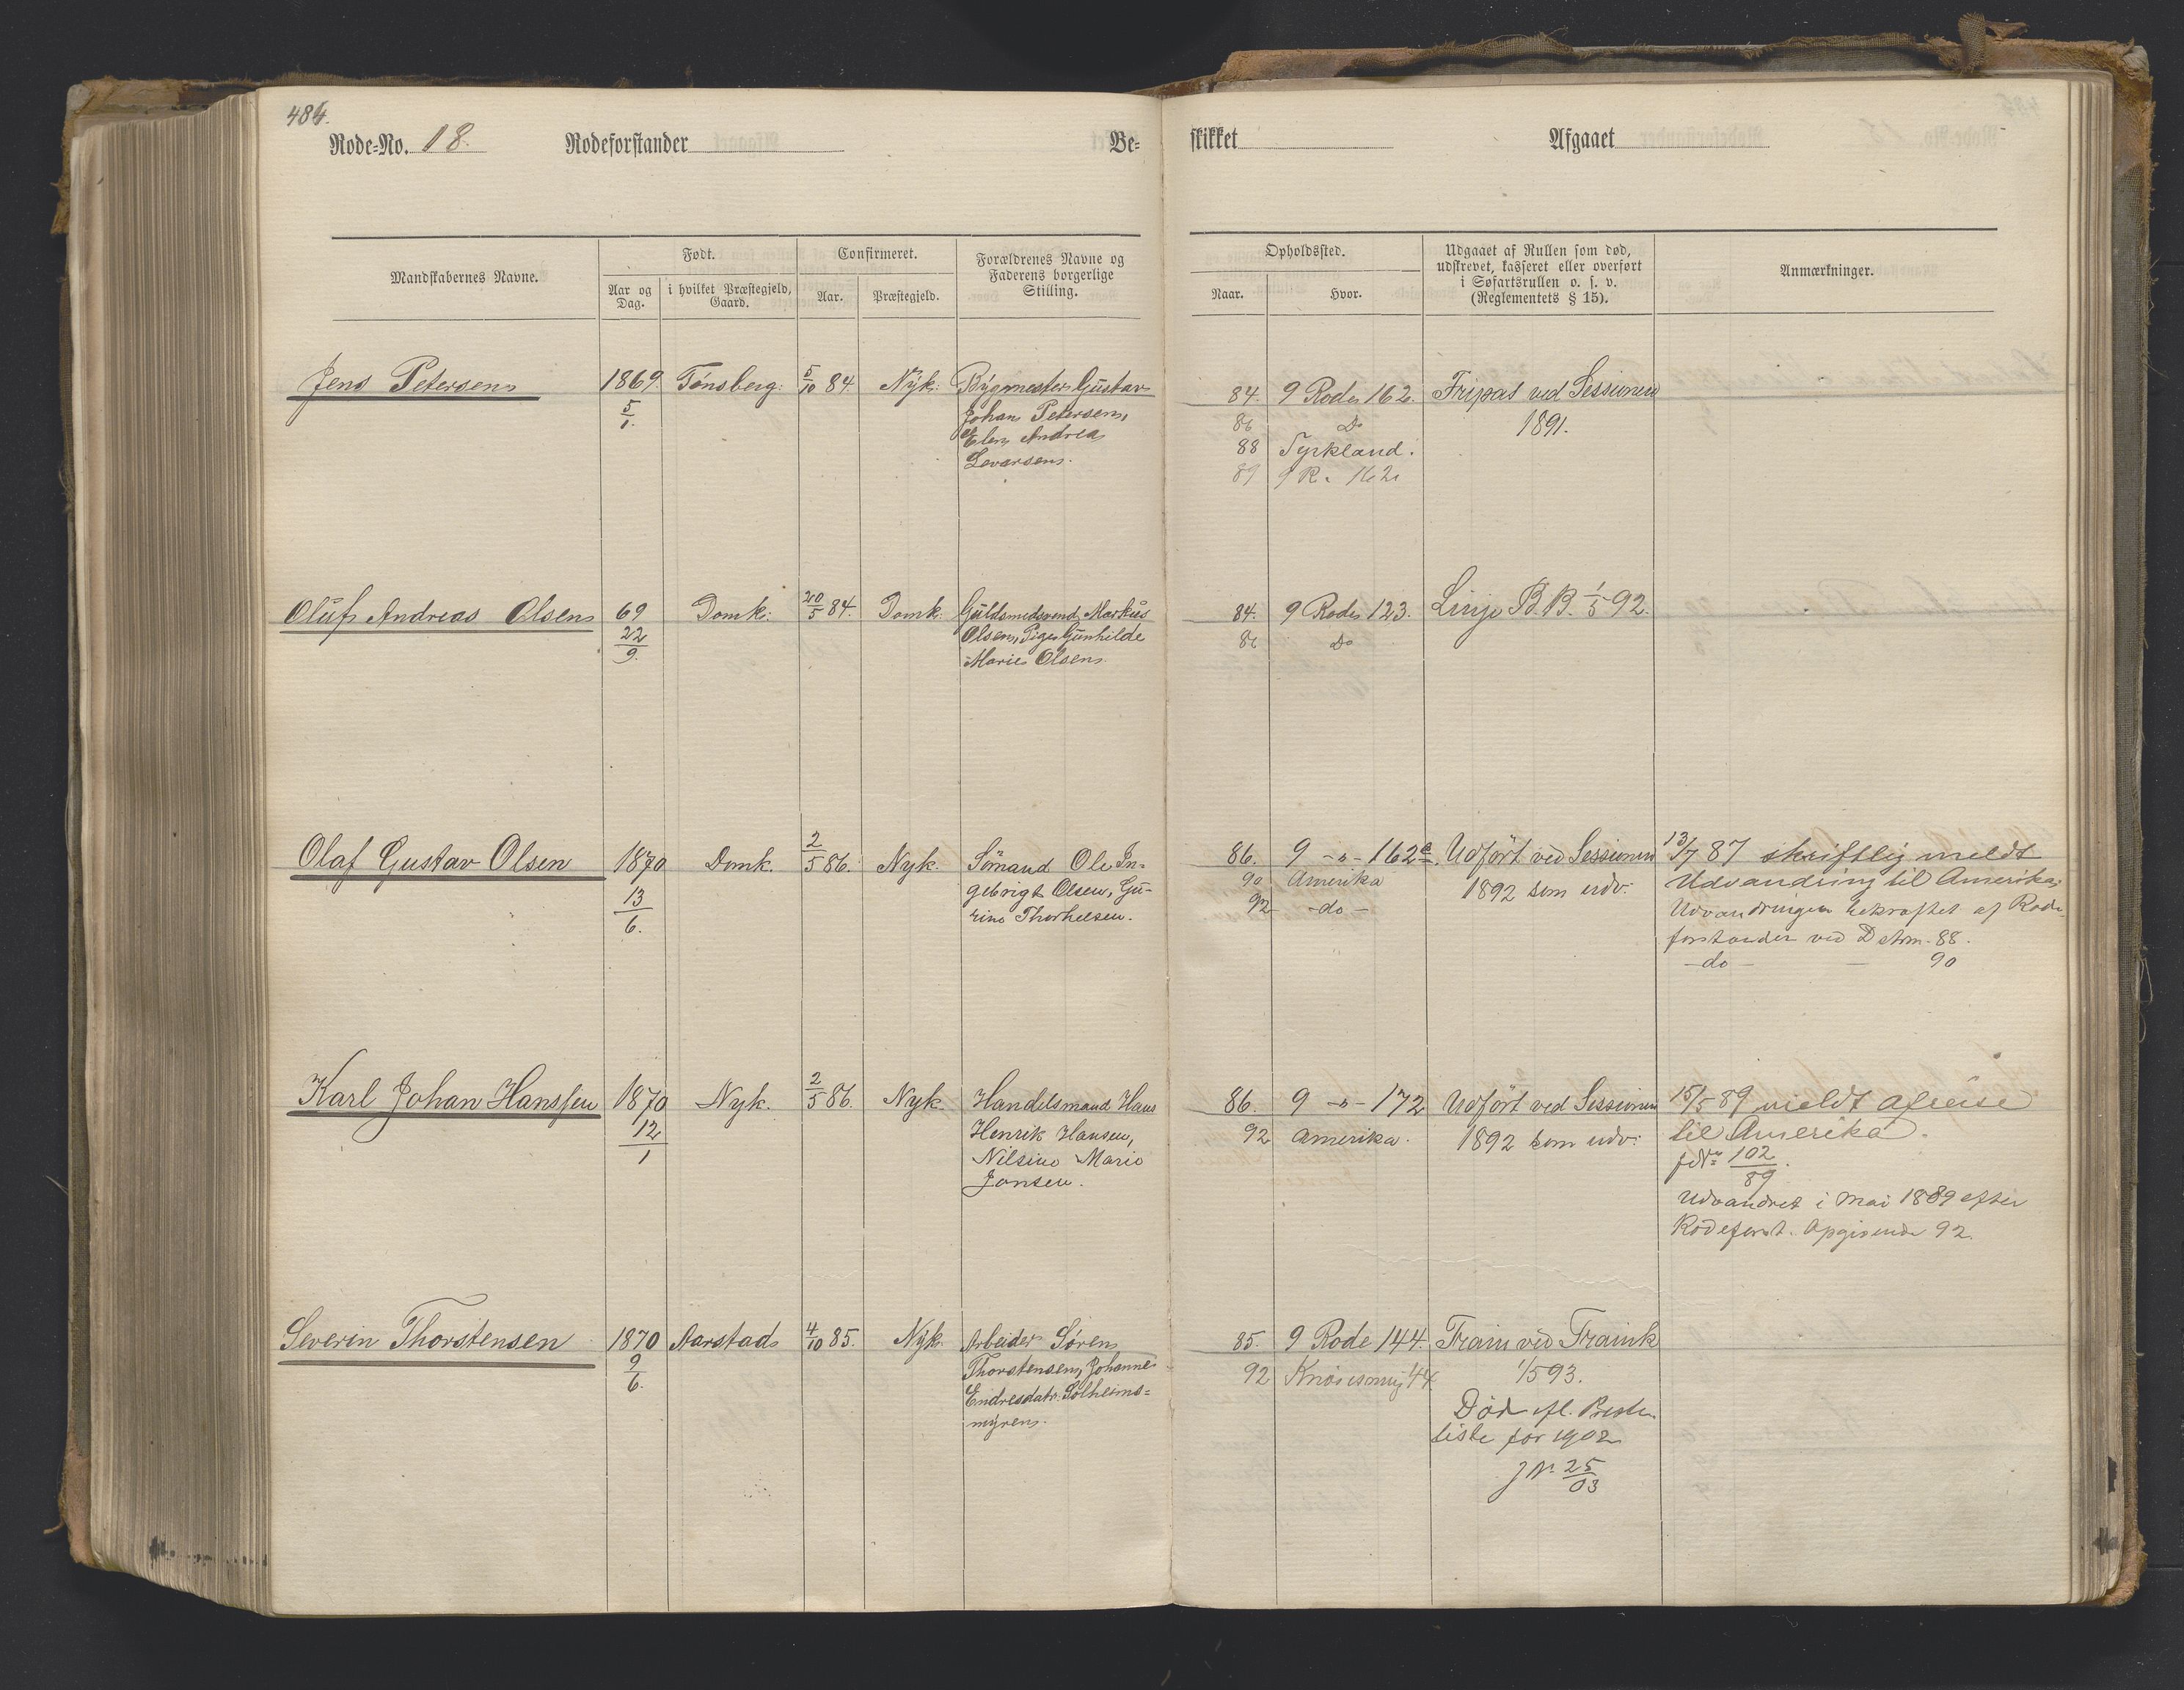 484.
Rode-No. 18. Rodeforstander Be-
skikket Afgaaet
Mandskabernes Navne. Født. Confirmeret. Forældrenes Navne og Faderens borgerlige Stilling.
Aar og Dag. i hvilket Præstegjeld, Gaard. Aar. Præstegjeld.
Opholdssted. Udgaaet af Rullen som død, udskrevet, kasseret eller overført i Søfartsrullen o. s. v. (Reglementets § 15). Anmærkninger.
Naar. Hvor.
Jens Petersen 1869 Tönsberg. 5/10 84. Nyk. Bygmester Gustav
5/1. Johan Petersen,
Elen Andrea
Seversen.
84. 9 Rode 162. Fripas ved Sessionen
86 Do 1891.
88 Tyrkland.
89 9 R. 162
Oluf Andreas Olsen 69 Domk. 20/5 84. Domk. Guldsmedsvend Markus
22/9. Olsen, Pige Gunhilde
Marie Olsen.
84. 9 Rode 123. Linje B.B. 1/5 92.
86 Do
Olaf Gustav Olsen 1870 Domk. 2/5 86. Nyk. Sömand Ole In-
13/6. gebrigt Olsen, Gu-
rine Thorkelsen.
86. 9 -"- 162a. Udfört ved Sessionen 13/7 87 skriftlig meldt
90 Amerika 1892 som udv. Udvandring til Amerika,
92 -do- Udvandringen bekræftet af Rode-
forstander ved Dstvm. 88.
-do- - 90
Karl Johan Hanssen 1870 Nyk. 2/5 86. Nyk. Handelsmand Hans
12/1 Henrik Hansen,
Nilsine Marie
Jansen.
86. 9 -"- 172 Udfört ved Sessionen 15/5 89 meldt afreise
92 Amerika. 1892 som udv. til Amerika.
jNr 102/89.
Udvandret i Mai 1889 efter
Rodeforst. Opgivende 92.
Severin Thorstensen 1870 Aarstad 4/10 85. Nyk. Arbeider Sören
9/6. Thorstensen, Johanne
Endresdatr. Solheims-
myren.
85. 9 Rode 144. Train ved Traink
92 44 1/5 93.
Död efl. Preste
liste for 1902
J Nr 25/03